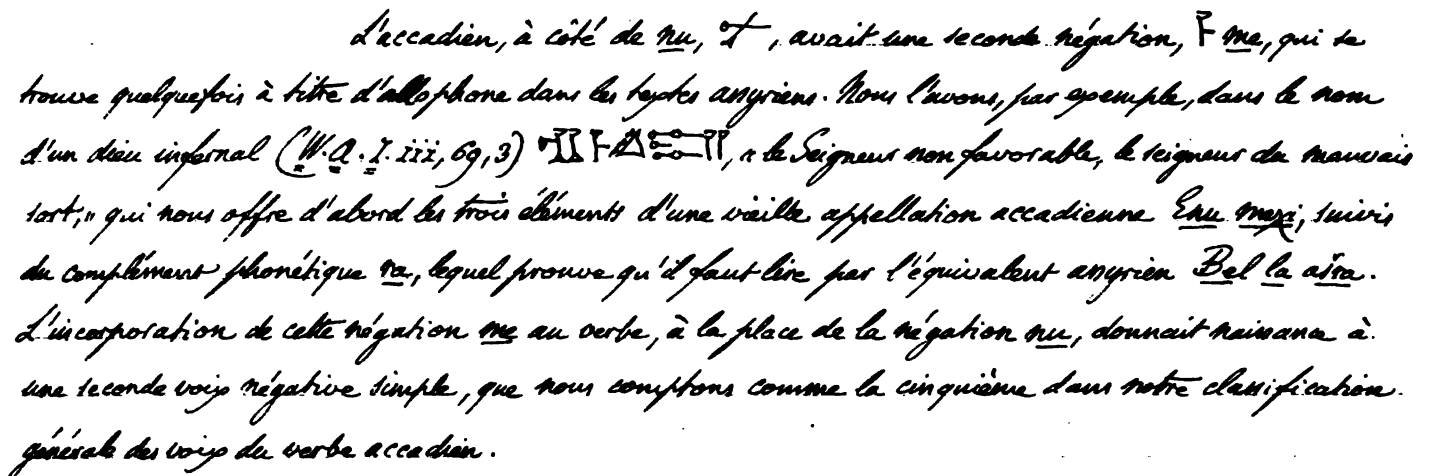 L'accadien, à côté de nu, 𒉡, avait une seconde négation, 𒈨 me, qui se
trouve quelquefois à titre d'allophone dans les textes assyriens. Nous l'avons, par exemple, dans le nom
d'un dieu infernal (W.A.I. iii, 69, 3) , « le Seigneur non favorable, le seigneur du mauvais
sort, » qui nous offre d'abord les trois éléments d'une vieille appellation accadienne Enu , suivis
du complément phonétique ra, lequel prouve qu'il faut lire par l'équivalent assyrien Bel la aśra.
L'incorporation de cette négation me au verbe, à la place de la négation nu, donnait naissance à
une seconde voix négative simple, que nous comptons comme la cinquième dans notre classification
générale des voix du verbe accadien.